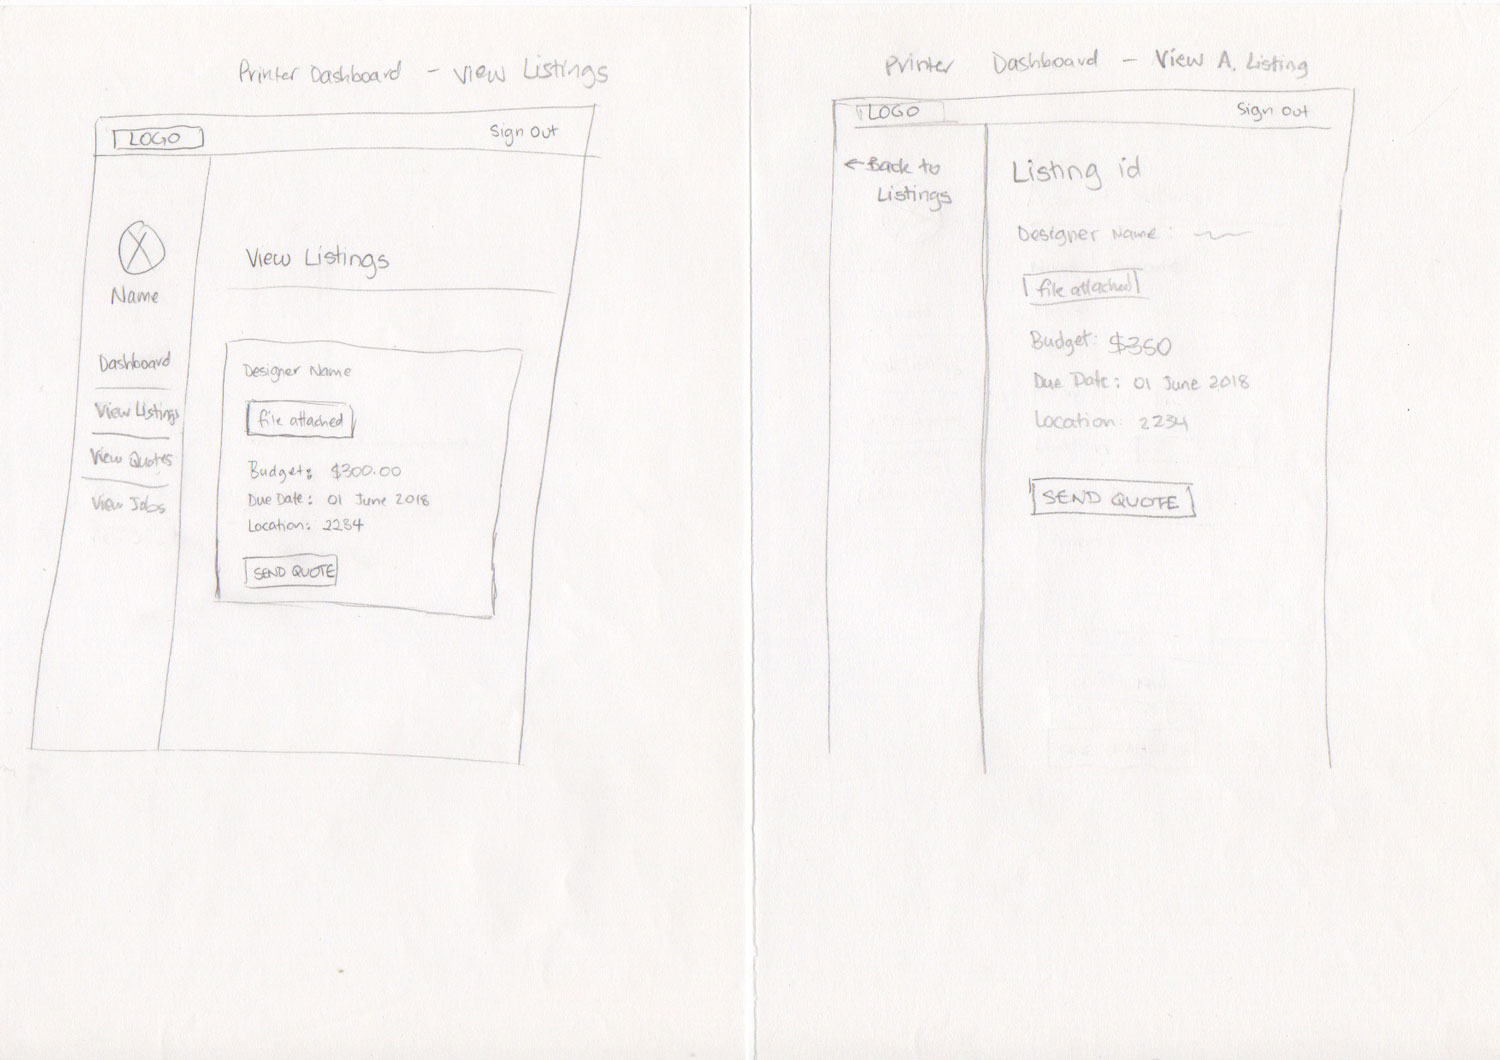 Printer Dashboard - View Listings
LOGO
Sign Out
Name
Dashboard
View Listings
View Quotes
View Jobs
View Listings
Designer Name
file attached
Budget: $300.00
Due Date: 01 June 2018
Location: 2234
SEND QUOTE
Printer Dashboard - View A. Listing
LOGO
Sign Out
← Back to
Listings
Listing id
Designer Name:
file attached
Budget: $350
Due Date: 01 June 2018
Location: 2234
SEND QUOTE